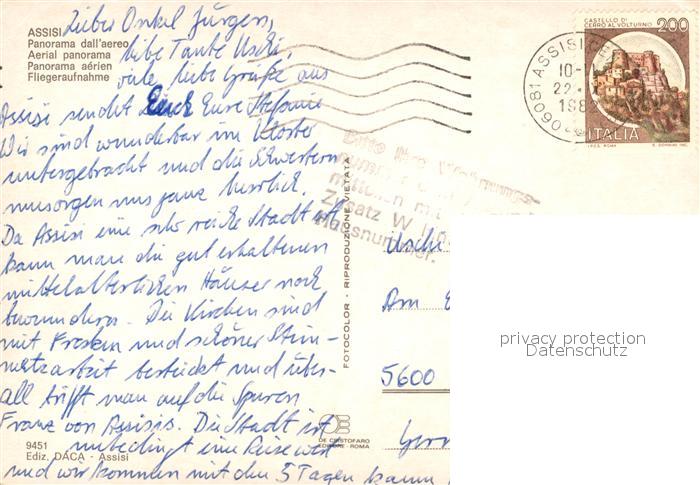 ASSISI
Panorama dall'aereo
Aerial panorama
Panorama aérien
Fliegeraufnahme
Lieber Onkel Jürgen,
liebe Tante Uschi,
viele liebe Grüße aus
Assisi sendet Euch Eure Stefanie
Wir sind wunderbar im Kloster
untergebracht und die Schwestern
umsorgen uns ganz herrlich.
Da Assisi eine sehr reiche Stadt ist
kann man die gut erhaltenen
mittelalterlichen Häuser noch
bewundern. Die Kirchen sind
mit Fresken und schöner Stein-
metzarbeit bestückt und über-
all trifft man auf die Spuren
Franz von Assisis. Die Stadt ist
unbedingt eine Reise wert
und wir kommen mit den 5 Tagen kaum
9451
Ediz. DACA - Assisi
FOTOCOLOR - RIPRODUZIONE VIETATA
DE CRISTOFARO
EDITORE - ROMA
CASTELLO DI
CERRO AL VOLTURNO
200
ITALIA
I.P.Z.S. ROMA
06081 ASSISI
10-
22.
198
Bitte Ihre Wohnungs-
nummer
mitteilen mit
Zusatz W
Hausnummer.
Uschi
Am
5600
Germ
privacy protection
Datenschutz